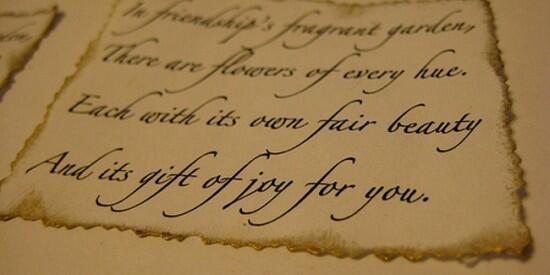 In friendship's fragrant garden,
There are flowers of every hue.
Each with its own fair beauty
And its gift of joy for you.